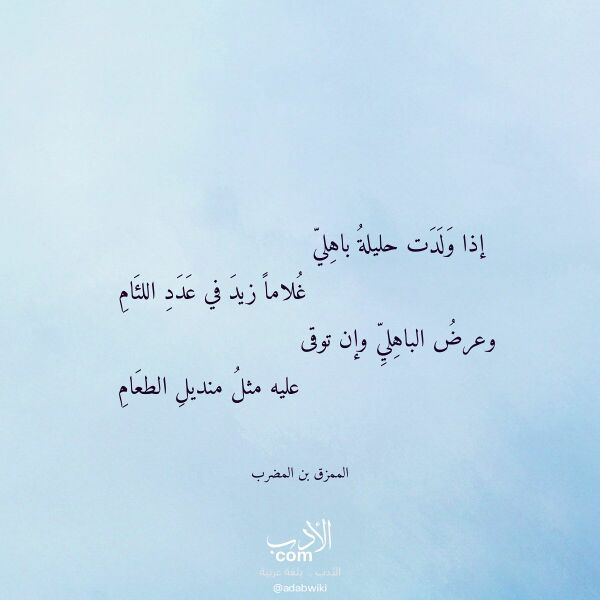 إذا وَلَدَت حليلةُ باهِليّ
غُلاماً زيدَ في عَدَدِ اللئَامِ
وعرضُ الباهِليِّ وإن توقى
عليه مثلُ منديلِ الطعَامِ
الممزق بن المضرب
الأدب
com
الأدب .. بلغة عربية
@adabwiki